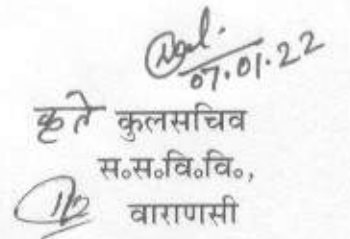 07.01.22
कृते कुलसचिव
स॰स॰वि॰वि॰,
वाराणसी